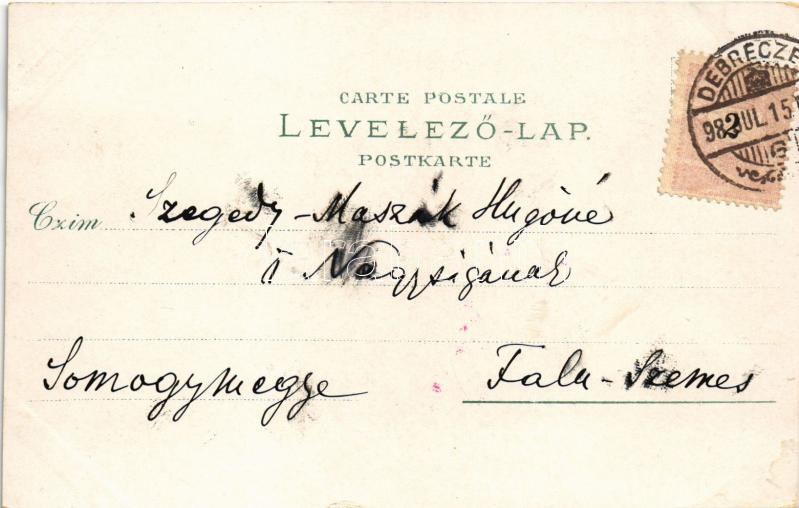 CARTE POSTALE
LEVELEZŐ-LAP.
POSTKARTE
DEBRECZE
98 JUL. 15
Czim Szegedy-Maszák Hugóné
Ő Nagyságának
Somogymegye Falu-Szemes